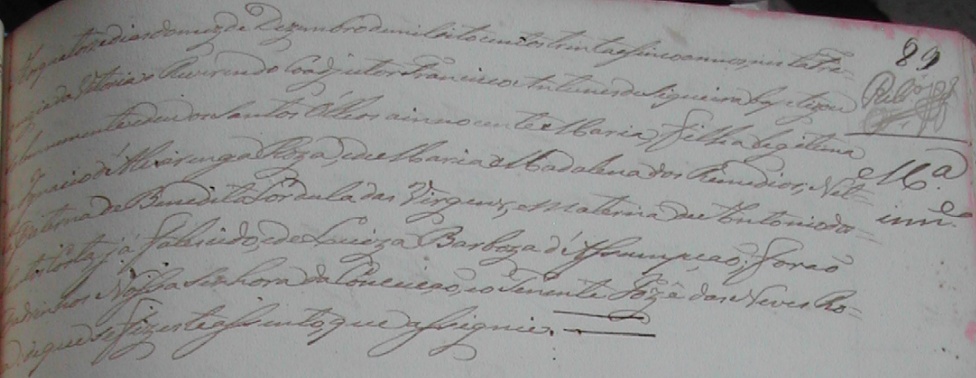 quatorze dias do mez de Dezembro de mil oito centos trinta e sinco annos, nesta Fre=
guezia da Vitoria o Reverendo Coadjutor Francisco Antunes de Siqueira baptizou
solemnemente e deu os Santos Oleos a innocente Maria, filha legitima
Ignacio d'Alvarenga Roza, e de Maria Madalena dos Remedios, Net=
paterna de Benedita Cordula das Virgens, e Materna de Antonio do
já falescido, e de Luiza Barboza d'Assumpção; forão
Padrinhos Nossa Senhora da Conceição, e o Tenente Jozê das Neves
de que se fiz este assento, que assignei.
89
Rubº
Mª
inn.e